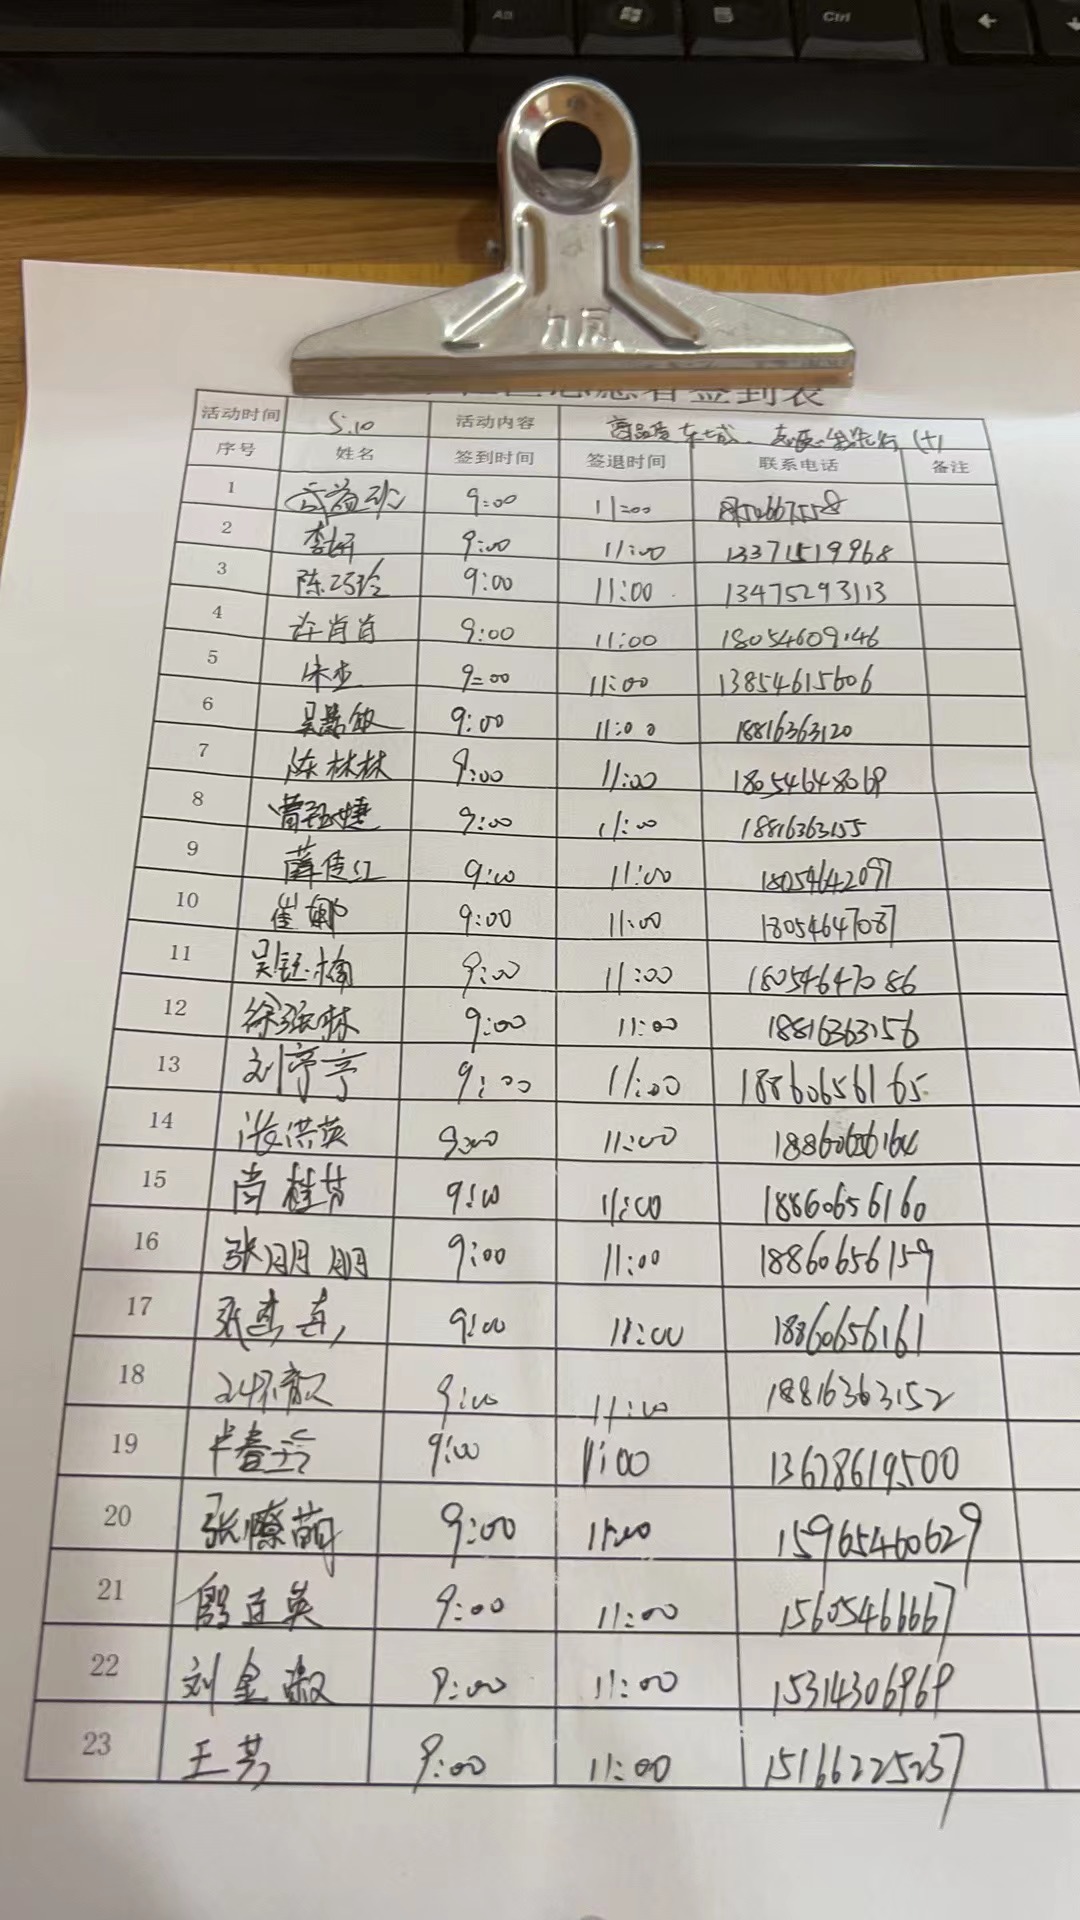 Alt
Ctrl
志愿者签到表
活动时间 5.10 活动内容
序号 姓名 签到时间 签退时间 联系电话 备注
1 9:00 11:00
2 李妍 9:00 11:00 13371519968
3 陈巧玲 9:00 11:00 13475293113
4 许肖肖 9:00 11:00 18054609146
5 9:00 11:00 13854615606
6 吴慧敏 9:00 11:00 18816363120
7 陈林林 9:00 11:00 18054648069
8 曹钰婕 9:00 11:00 18816363155
9 薛佳红 9:00 11:00 18054642097
10 崔娜 9:00 11:00 18054647087
11 吴钰楠 9:00 11:00 18054647086
12 徐强林 9:00 11:00 18816363156
13 刘亭亭 9:00 11:00 18860656165
14 张洪英 9:00 11:00 18860656164
15 尚桂芳 9:00 11:00 18860656160
16 张朋朋 9:00 11:00 18860656159
17 9:00 11:00 18860656161
18 9:00 11:00 18816363152
19 9:00 11:00 13678619500
20 张燎萌 9:00 11:00 15965460629
21 9:00 11:00 15605466667
22 刘金淑 9:00 11:00 15314306969
23 王芳 9:00 11:00 15166225237